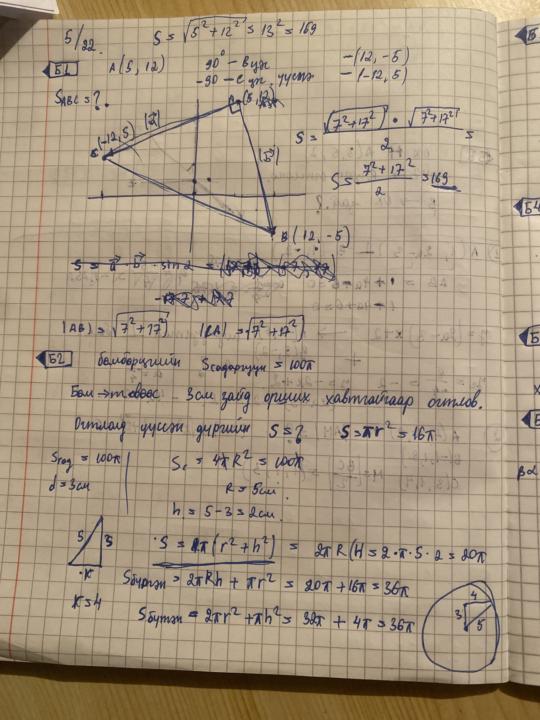 5/22. S = √5²+12² = 13² = 169
Б1 A(5, 12) 90° - B цэг -(12, -5)
-90 - C цэг үүснэ -(-12, 5)
S ABC = ?
(-12, 5) |a⃗| (5, 12)
C |b⃗|
S = √7²+17² · √7²+17² / 2 =
S = 7²+17² / 2 = 169
B (12, -5)
S = a⃗ · b⃗ · sin α =
|AB| = √7²+17² |CA| = √7²+17²
Б2 бөмбөрцгийн S гадаргуун = 100π
Бөм → төвөөс 3см зайд орших хавтгайгаар огтлов.
Огтлолд үүссэн дүрсийн S = ? S = πr² = 16π
S гад = 100π S₁ = 4πR² = 100π
d = 3см R = 5см.
h = 5 - 3 = 2см.
5 3
x
S = π(r² + h²) = 2πRH = 2·π·5·2 = 20π
x = 4
S бүрэн = 2πRh + πr² = 20π + 16π = 36π
S бүтэн = 2πr² + πh² = 32π + 4π = 36π
4
3 5